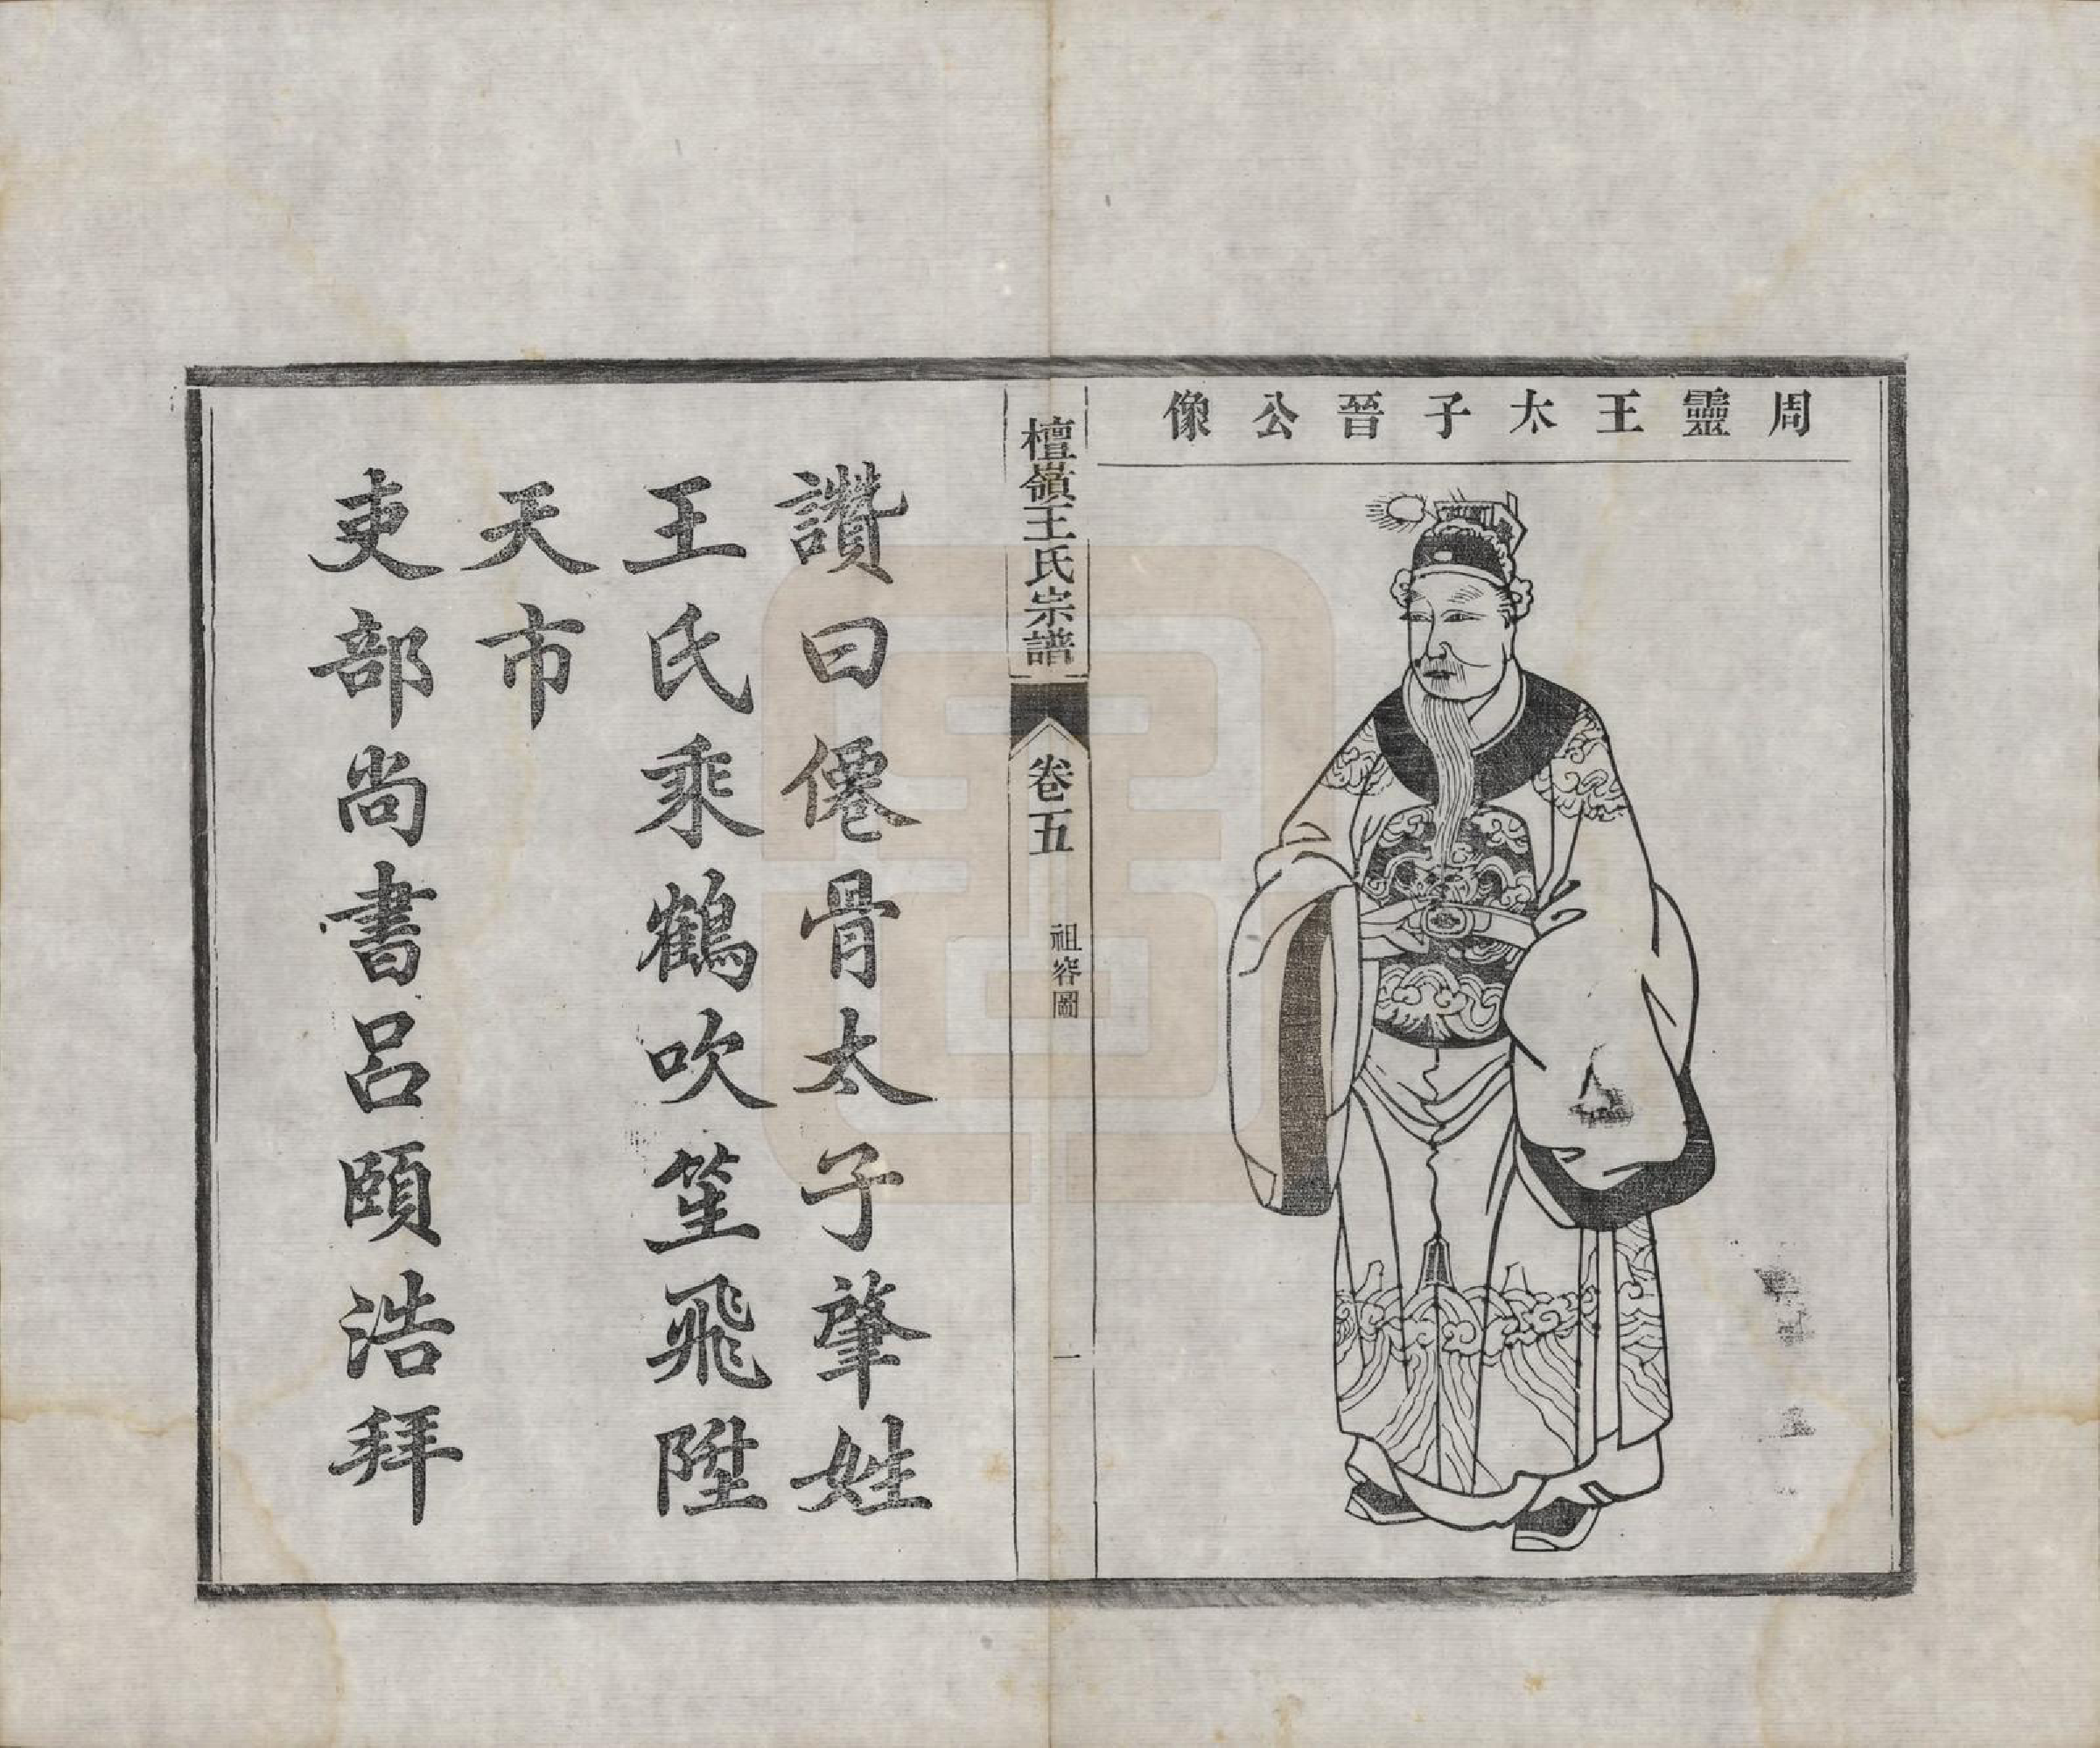 周靈王太子晉公像
檀嶺王氏宗譜
卷五
祖容圖
一
讚曰僊骨太子肇姓
王氏乘鶴吹笙飛陞
天市
吏部尚書呂頤浩拜